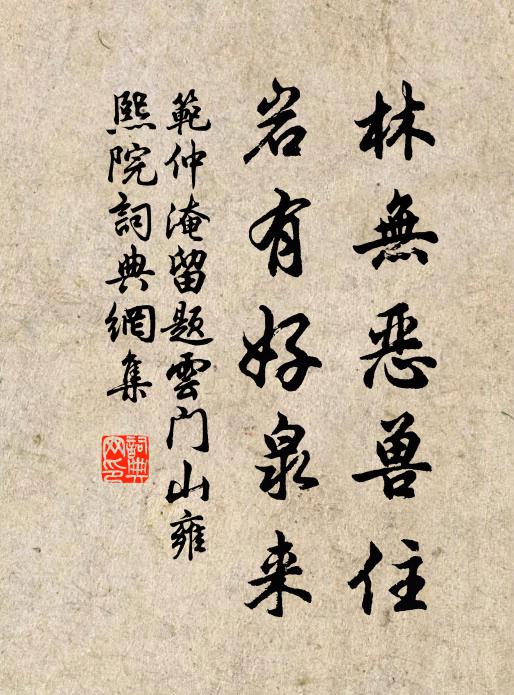 林無恶兽住
岩有好泉来
範仲淹留题雲门山雍
熙院詞典網集
詞典網印